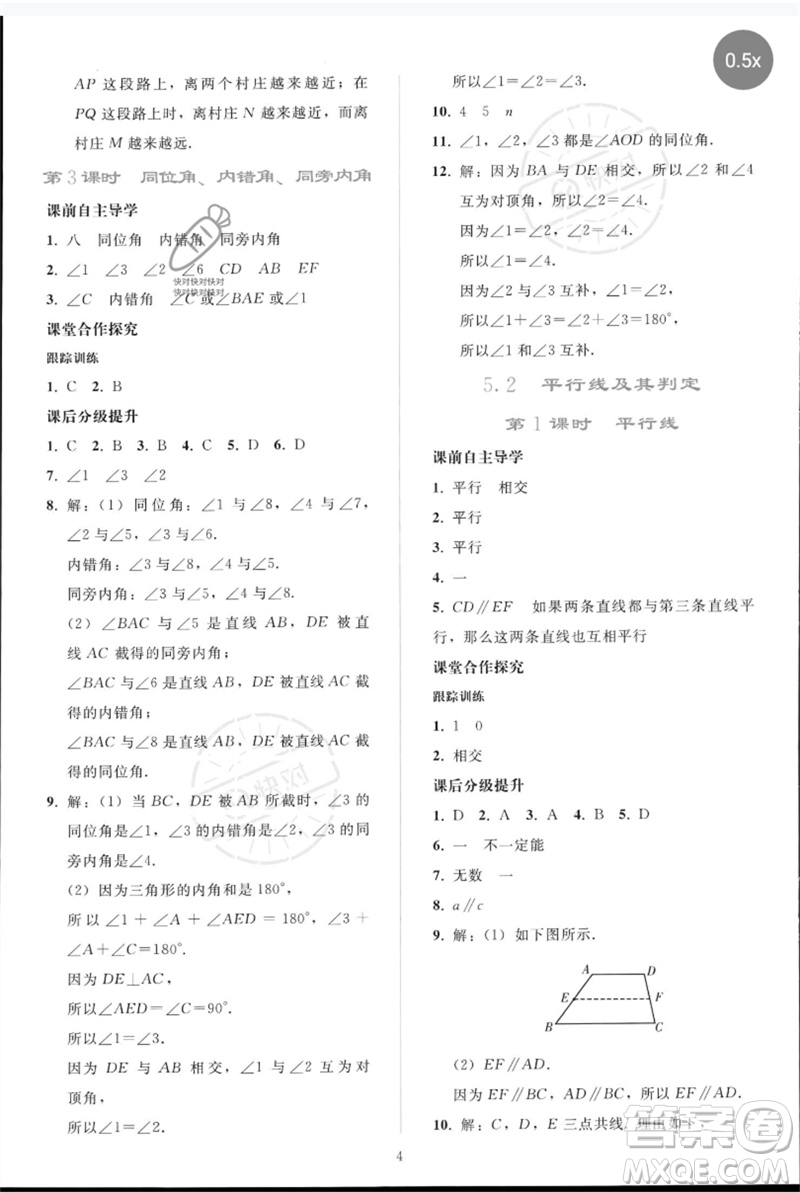 AP 这段路上，离两个村庄越来越近；在
PQ 这段路上时，离村庄 N 越来越近，而离
村庄 M 越来越远.
第 3 课时 同位角、内错角、同旁内角
课前自主导学
1. 八 同位角 内错角 同旁内角
2. ∠1 ∠3 ∠2 ∠6 CD AB EF
3. ∠C 内错角 ∠C 或∠BAE 或∠1
快对快对快对
快对快对快对
课堂合作探究
跟踪训练
1. C 2. B
课后分级提升
1. C 2. B 3. B 4. C 5. D 6. D
7. ∠1 ∠3 ∠2
8. 解：（1）同位角：∠1 与∠8，∠4 与∠7，
∠2 与∠5，∠3 与∠6.
内错角：∠3 与∠8，∠4 与∠5.
同旁内角：∠3 与∠5，∠4 与∠8.
（2）∠BAC 与∠5 是直线 AB，DE 被直
线 AC 截得的同旁内角；
∠BAC 与∠6 是直线 AB，DE 被直线 AC 截
得的内错角；
∠BAC 与∠8 是直线 AB，DE 被直线 AC 截
得的同位角.
9. 解：（1）当 BC，DE 被 AB 所截时，∠3 的
同位角是∠1，∠3 的内错角是∠2，∠3 的同
旁内角是∠4.
（2）因为三角形的内角和是 180°，
所以 ∠1 + ∠A + ∠AED = 180°，∠3 +
∠A+∠C=180°.
因为 DE⊥AC，
所以∠AED=∠C=90°.
所以∠1=∠3.
因为 DE 与 AB 相交，∠1 与∠2 互为对
顶角，
所以∠1=∠2.
所以∠1=∠2=∠3.
10. 4 5 n
11. ∠1，∠2，∠3 都是∠AOD 的同位角.
12. 解：因为 BA 与 DE 相交，所以∠2 和∠4
互为对顶角，所以∠2=∠4.
因为∠1=∠2，
所以∠1=∠4.
因为∠2 与∠3 互补，∠1=∠2，
所以∠1+∠3=∠2+∠3=180°，
所以∠1 和∠3 互补.
5.2 平行线及其判定
第 1 课时 平行线
课前自主导学
1. 平行 相交
2. 平行
3. 平行
4. 一
5. CD∥EF 如果两条直线都与第三条直线平
行，那么这两条直线也互相平行
课堂合作探究
跟踪训练
1. 1 0
2. 相交
课后分级提升
1. D 2. A 3. A 4. B 5. D
6. 一 不一定能
7. 无数 一
8. a∥c
9. 解：（1）如下图所示.
A D
E F
B C
（2）EF∥AD.
因为 EF∥BC，AD∥BC，所以 EF∥AD.
10. 解：C，D，E 三点共线，理由如下：
4
0.5x
快对
快对
答案圈
MXQE.COM